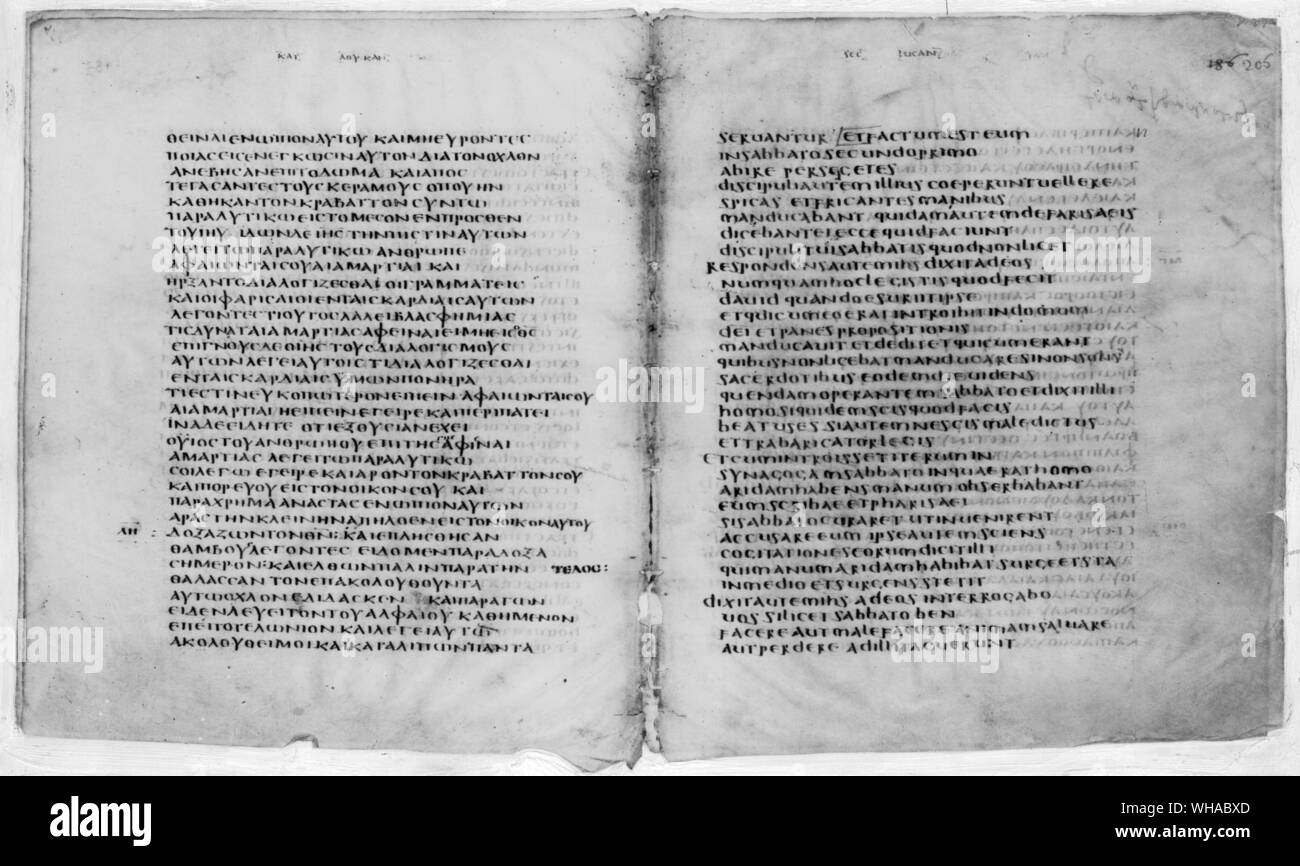 ΚΑΤ ΛΟΥΚΑΝ
ΘΕΙΝΑΙ ΕΝΩΠΙΟΝ ΑΥΤΟΥ ΚΑΙ ΜΗ ΕΥΡΟΝΤΕΣ
ΠΟΙΑΣ ΕΙΣΕΝΕΓΚΩΣΙΝ ΑΥΤΟΝ ΔΙΑ ΤΟΝ ΟΧΛΟΝ
ΑΝΕΒΗΣΑΝ ΕΠΙ ΤΟ ΔΩΜΑ ΚΑΙ ΑΠΟΣ
ΤΕΓΑΣΑΝΤΕΣ ΤΟΥΣ ΚΕΡΑΜΟΥΣ ΟΠΟΥ ΗΝ
ΚΑΘΗΚΑΝ ΤΟΝ ΚΡΑΒΑΤΤΟΝ ΣΥΝ ΤΩ
ΠΑΡΑΛΥΤΙΚΩ ΕΙΣ ΤΟ ΜΕΣΟΝ ΕΝΠΡΟΣΘΕΝ
ΤΟΥ ΙΗΥ ΙΔΩΝ ΔΕ ΙΗΣ ΤΗΝ ΠΙΣΤΙΝ ΑΥΤΩΝ
ΛΕΓΕΙ ΤΩ ΠΑΡΑΛΥΤΙΚΩ ΑΝΘΡΩΠΕ
ΑΦΕΩΝΤΑΙ ΣΟΥ ΑΙ ΑΜΑΡΤΙΑΙ ΚΑΙ
ΗΡΞΑΝΤΟ ΔΙΑΛΟΓΙΖΕΣΘΑΙ ΟΙ ΓΡΑΜΜΑΤΕΙΣ
ΚΑΙ ΟΙ ΦΑΡΙΣΑΙΟΙ ΕΝ ΤΑΙΣ ΚΑΡΔΙΑΙΣ ΑΥΤΩΝ
ΛΕΓΟΝΤΕΣ ΤΙ ΟΥΤΟΣ ΛΑΛΕΙ ΒΛΑΣΦΗΜΙΑΣ
ΤΙΣ ΔΥΝΑΤΑΙ ΑΜΑΡΤΙΑΣ ΑΦΕΙΝΑΙ ΕΙ ΜΗ ΕΙΣ ΘΣ
ΕΠΙΓΝΟΥΣ ΔΕ Ο ΙΗΣ ΤΟΥΣ ΔΙΑΛΟΓΙΣΜΟΥΣ
ΑΥΤΩΝ ΛΕΓΕΙ ΑΥΤΟΙΣ ΤΙ ΔΙΑΛΟΓΙΖΕΣΘΑΙ
ΕΝ ΤΑΙΣ ΚΑΡΔΙΑΙΣ ΥΜΩΝ ΠΟΝΗΡΑ
ΤΙ ΕΣΤΙΝ ΕΥΚΟΠΩΤΕΡΟΝ ΕΠΕΙΝ ΑΦΑΙΩΝΤΑΙ ΣΟΥ
ΑΙ ΑΜΑΡΤΙΑΙ Η ΕΙΠΕΙΝ ΕΓΕΙΡΕ ΚΑΙ ΠΕΡΙΠΑΤΕΙ
ΙΝΑ ΔΕ ΕΙΔΗΤΕ ΟΤΙ ΕΞΟΥΣΙΑΝ ΕΧΕΙ
Ο ΥΙΟΣ ΤΟΥ ΑΝΘΡΩΠΟΥ ΕΠΙ ΤΗΣ ΓΗΣ ΑΦΙΝΑΙ
ΑΜΑΡΤΙΑΣ ΛΕΓΕΙ ΤΩ ΠΑΡΑΛΥΤΙΚΩ
ΣΟΙ ΛΕΓΩ ΕΓΕΙΡΕ ΚΑΙ ΑΡΟΝ ΤΟΝ ΚΡΑΒΑΤΤΟΝ ΣΟΥ
ΚΑΙ ΠΟΡΕΥΟΥ ΕΙΣ ΤΟΝ ΟΙΚΟΝ ΣΟΥ ΚΑΙ
ΠΑΡΑΧΡΗΜΑ ΑΝΑΣΤΑΣ ΕΝΩΠΙΟΝ ΑΥΤΩΝ
ΑΡΑΣ ΤΗΝ ΚΛΕΙΝΗΝ ΑΠΗΛΘΕΝ ΕΙΣ ΤΟΝ ΟΙΚΟΝ ΑΥΤΟΥ
ΔΟΞΑΖΩΝ ΤΟΝ ΘΝ : ΚΑΙ ΕΠΛΗΣΘΗΣΑΝ
ΘΑΜΒΟΥ ΛΕΓΟΝΤΕΣ ΕΙΔΟΜΕΝ ΠΑΡΑΔΟΞΑ
ΣΗΜΕΡΟΝ : ΚΑΙ ΕΛΘΩΝ ΠΑΛΙΝ ΠΑΡΑ ΤΗΝ ΤΕΛΟΣ :
ΘΑΛΑΣΣΑΝ ΤΟΝ ΕΠΑΚΟΛΟΥΘΟΥΝΤΑ
ΑΥΤΩ ΟΧΛΟΝ ΕΔΙΔΑΣΚΕΝ ΚΑΙ ΠΑΡΑΓΩΝ
ΕΙΔΕΝ ΛΕΥΕΙ ΤΟΝ ΤΟΥ ΑΛΦΑΙΟΥ ΚΑΘΗΜΕΝΟΝ
ΕΠΙ ΤΟ ΤΕΛΩΝΙΟΝ ΚΑΙ ΛΕΓΕΙ ΑΥΤΩ
ΑΚΟΛΟΥΘΕΙ ΜΟΙ ΚΑΙ ΚΑΤΑΛΙΠΩΝ ΠΑΝΤΑ
SEC LUCAN
186 206
seruantur et factum est eum
in sabbato secundo primo
abire per segetes
discipuli autem illius coeperunt uellere
spicas et fricantes manibus
manducabant quidam autem de farisaeis
dicebant ei ecce quid faciunt
discipuli tui sabbatis quod non licet
respondens autem ihs dixit ad eos
numquam hoc legistis quod fecit
dauid quando esuriit ipse
et qui cum eo erat introibit in domum
dei et panes propositionis
manducauit et dedit et qui cum erant
quibus non licebat manducare si non solis
sacerdotibus eodem die uidens
quendam operantem sabbato et dixit illi
homo siquidem scis quod facis
beatus es si autem nescis maledictus
et trabaricator legis
et cum introisset iterum in
synagogam sabbato in qua erat homo
aridam habens manum obserbabant
eum scribae et pharisaei
si sabbato curaret ut inuenirent
accusare eum ipse autem sciens
cogitationes eorum dicit illi
qui manum aridam habibat surge et sta
in medio et surgens stetit
dixit autem ihs ad eos interrogabo
uos si licet sabbato ben
facere aut male facere animam saluare
aut perdere ad illi tacuerunt
alamy
Image ID: WHABXD
www.alamy.com